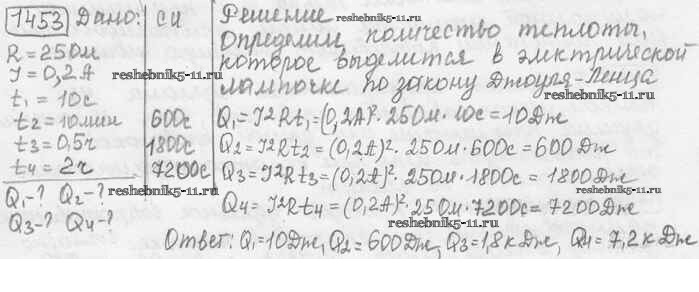 1453 Дано: СИ
R = 25 Ом
I = 0,2 А
t₁ = 10 с
t₂ = 10 мин 600 с
t₃ = 0,5 ч 1800 с
t₄ = 2 ч 7200 с
Q₁-? Q₂-?
Q₃-? Q₄-?
Решение
Определим количество теплоты,
которое выделится в электрической
лампочке по закону Джоуля-Ленца
Q₁ = I²Rt₁ = (0,2А)² · 25 Ом · 10с = 10 Дж
Q₂ = I²Rt₂ = (0,2А)² · 25 Ом · 600с = 600 Дж
Q₃ = I²Rt₃ = (0,2А)² · 25 Ом · 1800с = 1800 Дж
Q₄ = I²Rt₄ = (0,2А)² · 25 Ом · 7200с = 7200 Дж
Ответ: Q₁ = 10 Дж, Q₂ = 600 Дж, Q₃ = 1,8 кДж, Q₄ = 7,2 кДж
www.reshebnik5-11.ru
www.reshebnik5-11.ru
www.reshebnik5-11.ru
www.reshebnik5-11.ru
www.reshebnik5-11.ru
www.reshebnik5-11.ru